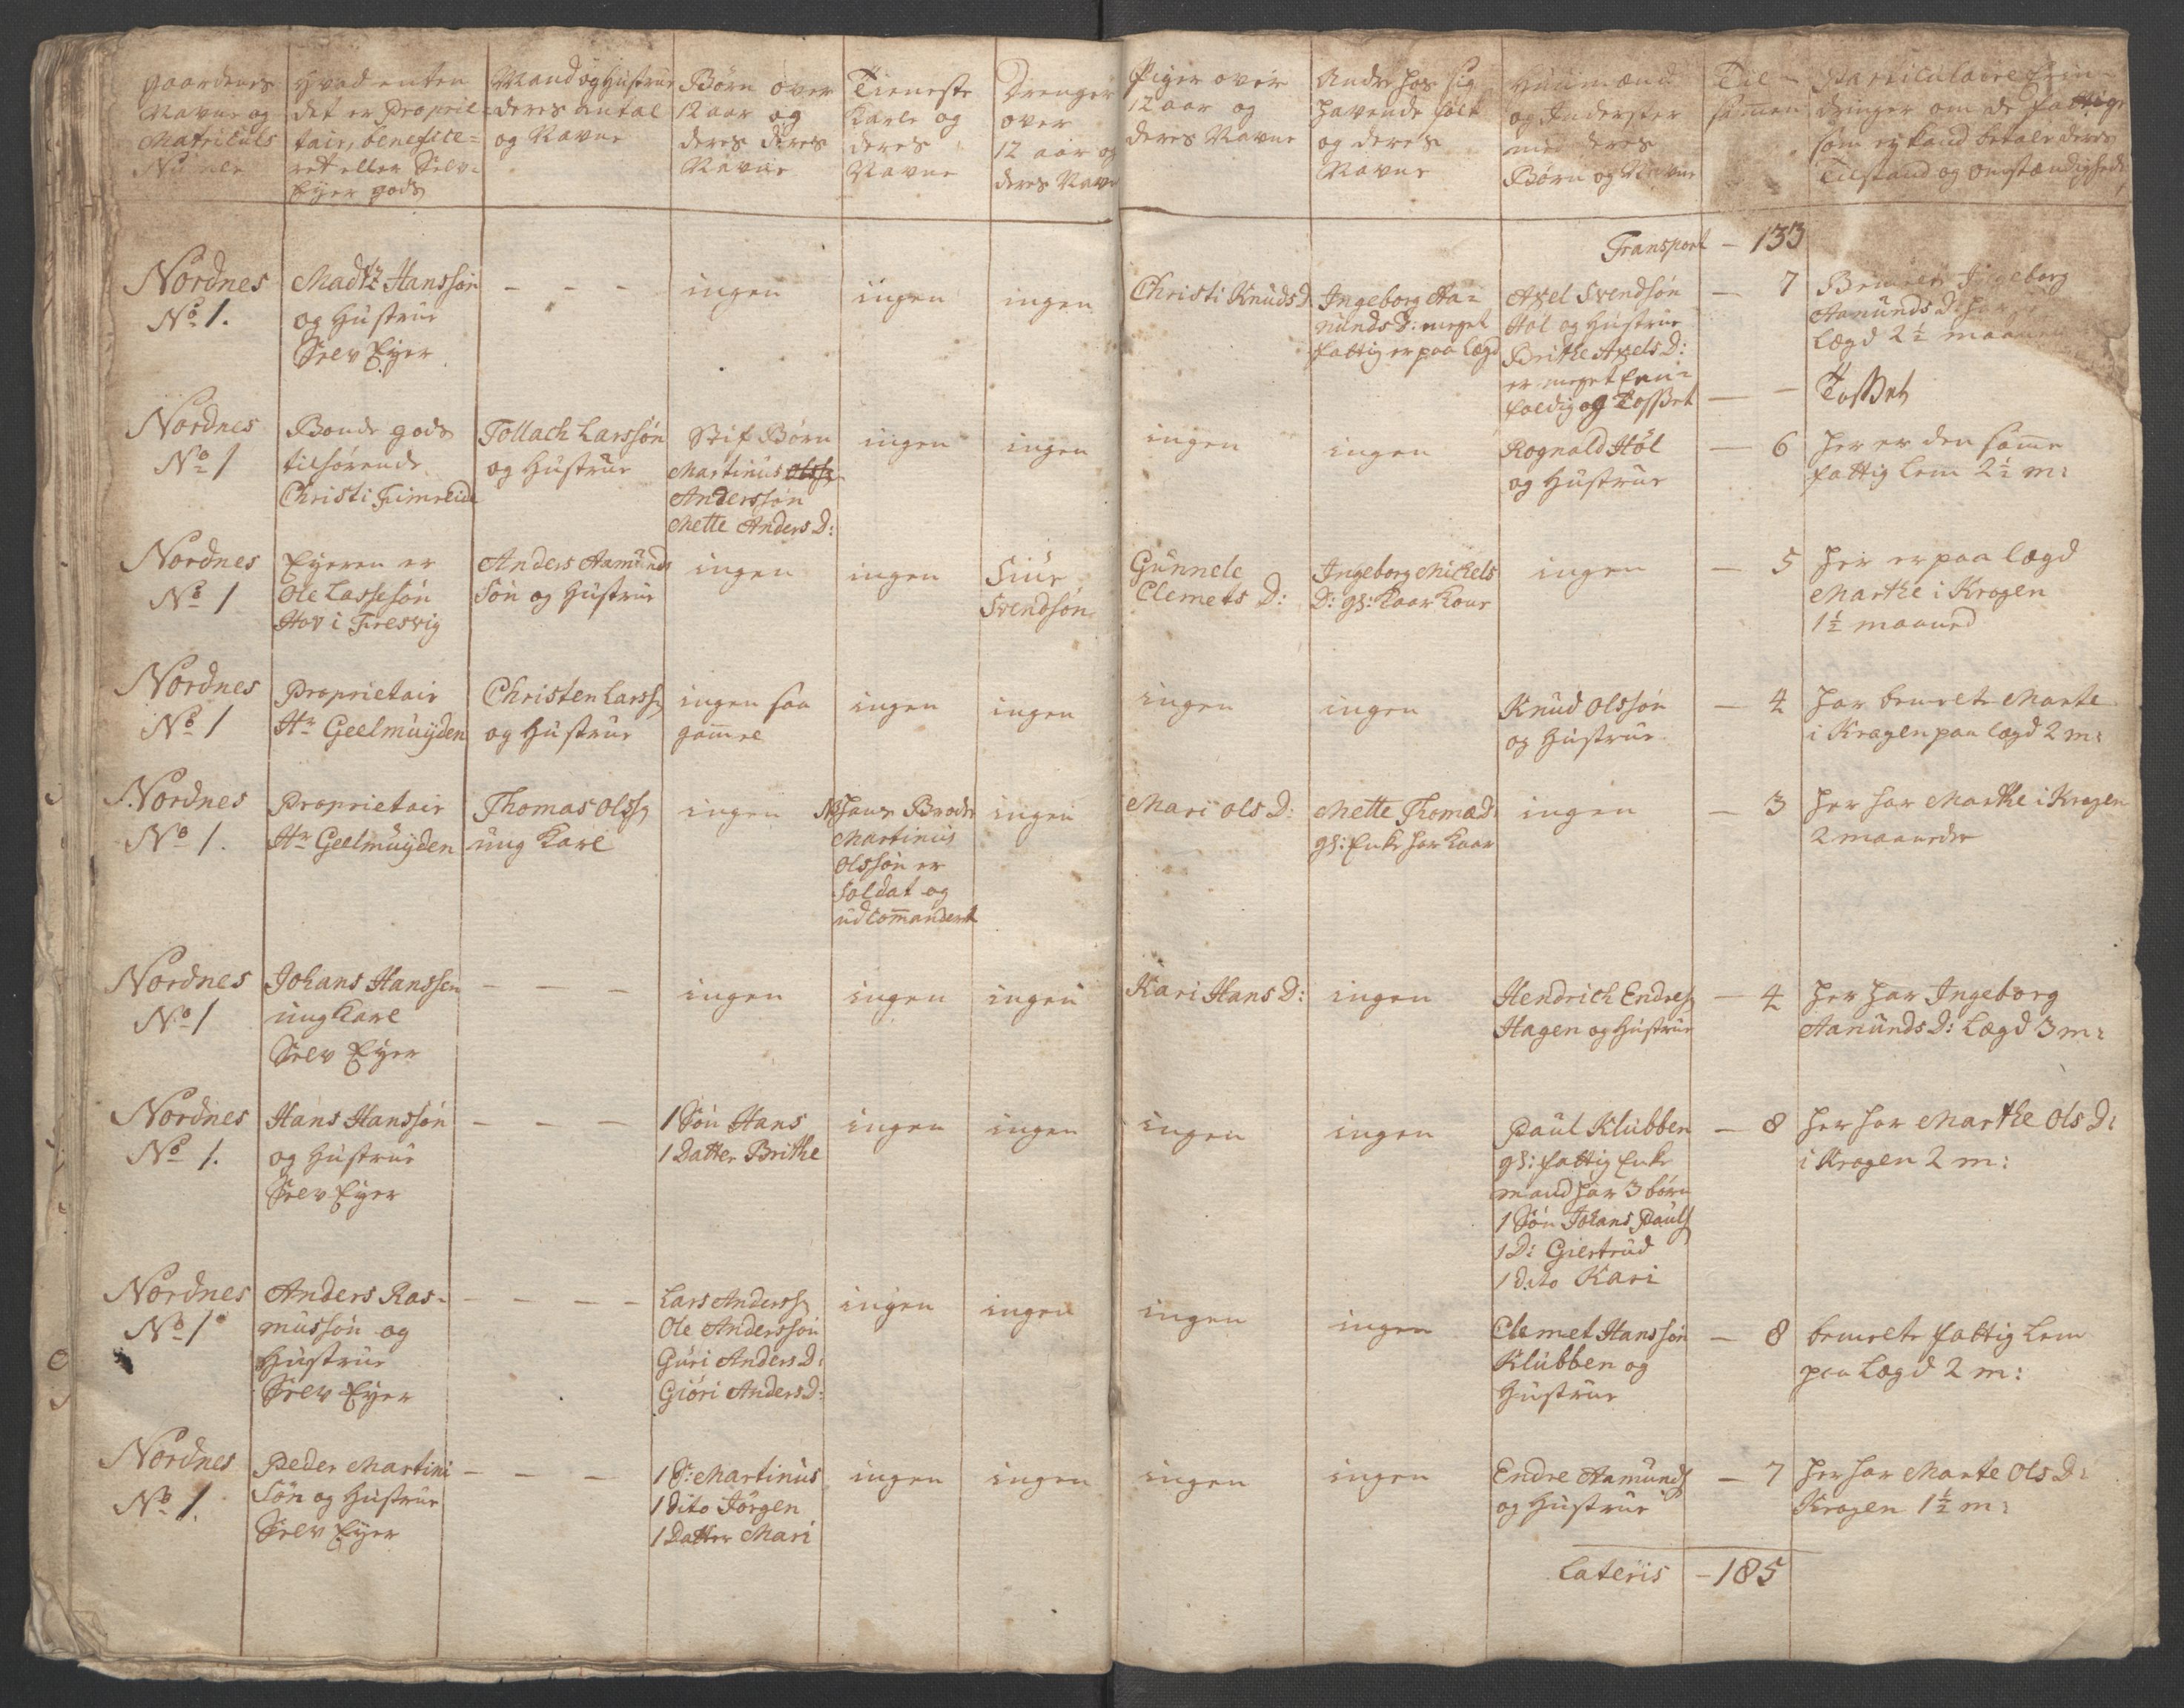 Gaardenes
Navne og
Matriculs
No
Hvad enten
det er Proprie-
tair, benefice-
ret eller Selv-
Eyer gods
Mand og Hustrue
deres antal
og Navne
Børn over
12 aar og
deres deres
Navne
Tieneste
Karle og
deres
Navne
Drenger
over
12 aar og
deres Navne
Piger over
12 aar og
deres Navne
Andre hos sig
havende folk
og deres
Navne
Huusmænd
og Inderster
med deres
Børn og Navne
Til-
samen
Particulaire Erin-
dringer om de fattige
som ey kand betale deres
Tilstand og omstændighede
Transport - 133
Nordnes
No 1.
Madtz Hanssøn
og Hustrue
Selv Eyer
- - -
ingen
ingen
ingen
Christi Knuds D:
Ingeborg Aa-
nunds D: meget
fattig er paa lægd
Axel Svendsøn
Hol og Hustrue
Brithe Axels D:
er meget Een-
foldig og Tosset
- 7
Ingeborg
Aanunds D:
Lægd 2½
- -
Tosset
Nordnes
No 1
Bonde gods
tilhørende
Christi Fimreide
Tollach Larssøn
og Hustrue
Stif Børn
Martinus Olss.
Anderssøn
Mette Anders D:
ingen
ingen
ingen
ingen
Rognald Hol
og Hustrue
- 6
her er den same
fattig Lem 2½ m:
Nordnes
No 1
Eyeren er
Ole Lassesøn
Hov i Fresvig
Anders Aamunds
Søn og Hustrue
ingen
ingen
Siur
Svendsøn
Gunnele
Clemets D:
Ingeborg Michels
D: gl: Kaar Kone
ingen
- 5
her er paa Lægd
Marthe i Krogen
1½ maaned
Nordnes
No 1
Proprietair
Hr Geelmuyden
Christen Larss.
og Hustrue
ingen saa
gamle
ingen
ingen
ingen
ingen
Knud Olssøn
og Hustrue
- 4
har bemelte Marte
i Krogen paa Lægd 2 m:
Nordnes
No 1.
Proprietair
Hr Geelmuyden
Thomas Olss.
ung Karl
ingen
NB hans Broder
Martinus
Olssøn er
Soldat og
udcommandert
ingen
Mari Ols D:
Mette Thomæ D:
gl: Enke har Kaar
ingen
- 3
her har Marthe i Krogen
2 maaneder
Nordnes
No 1
Johans Hanssen
ung Karl
Selv Eyer
- - -
ingen
ingen
ingen
Kari Hans D:
ingen
Hendrich Endres.
Hagen og Hustrue
- 4
her har Ingeborg
Aanunds D: Lægd 3 m:
Nordnes
No 1.
Hans Hanssøn
og Hustrue
Selv Eyer
- - -
1 Søn Hans
1 Datter Brithe
ingen
ingen
ingen
ingen
Paul Klubben
gl: fattig Enke
mand har 3 børn
1 Søn Johans Pauls.
1 D: Giertrud
1 Dito Kari
- 8
her har Marthe Ols D:
i Krogen 2 m:
Nordnes
No 1
Anders Ras-
mussøn og
Hustrue
Selv Eyer
- - - -
Lars Anderss.
Ole Anderssøn
Guri Anders D:
Giöri Anders D:
ingen
ingen
ingen
ingen
Clemet Hanssøn
Klubben og
Hustrue
- 8
bemelte fattig Lem
paa Lægd 2 m:
Nordnes
No 1.
Peder Martini
Søn og Hustrue
Selv Eyer
- - -
1 S: Martinus
1 Dito Jörgen
1 Datter Mari
ingen
ingen
ingen
ingen
Endre Aamunds.
og Hustrue
- 7
her har Marte Ols D:
Krogen 1½ m:
Lateris - 185